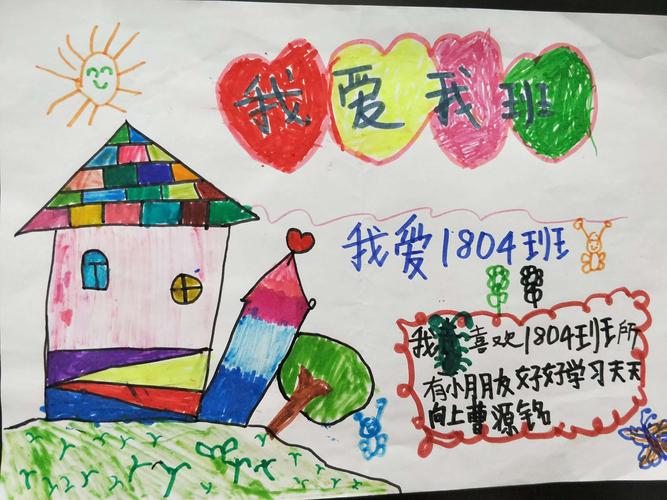 我爱我班
我爱1804班
我喜欢1804班所
有小朋友好好学习天天
向上曹源铭